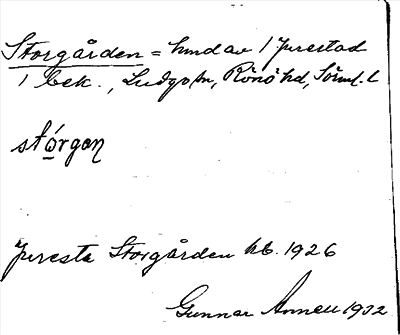 Storgården = hmd av 1 Juresta d
1 bek., Ludgo sn, Rönö hd, Söml. l
stórgan
Juresta Storgården kb. 1926
Gunnar Annell 1932